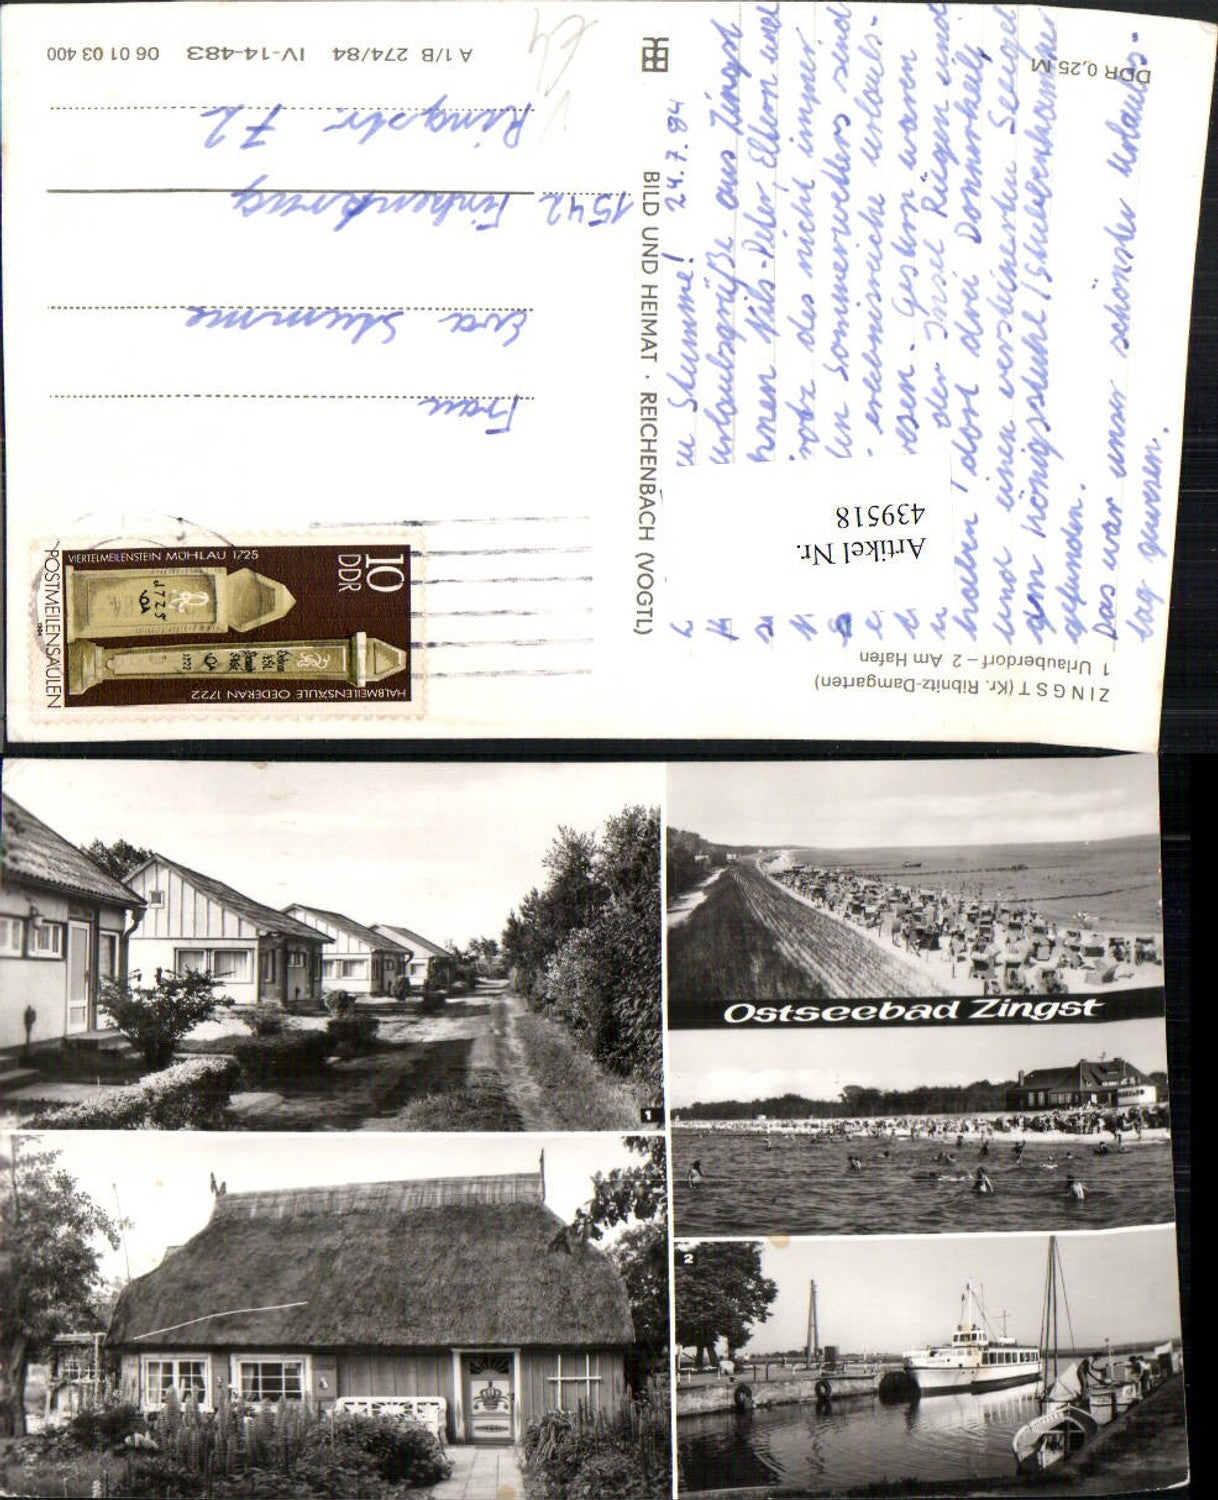 DDR 0,25 M
A 1/B 274/84 IV-14-483 06 01 03 400
BILD UND HEIMAT · REICHENBACH (VOGTL)
ZINGST (Kr. Ribnitz-Damgarten)
1 Urlauberdorf – 2 Am Hafen
Stumme! 24.7.84
urlaubsgrüße aus Zingst
Nils-Peter, Eltern und
des nicht immer
Sommerwetters sind
erlebnisreiche Urlaubs-
Gestern waren
der Insel Rügen und
haben dort drei Donnerkeile
und einen versteinerten Seeigel
am Königsstuhl / Stubbenkammer
gefunden.
Das war unser schönster Urlaubs-
tag gewesen.
Frau
Eva Stumme
1542 Finkenkrug
Ringstr. 72
10
DDR
VIERTELMEILENSTEIN MÜHLAU 1725
HALBMEILENSÄULE OEDERAN 1722
POSTMEILENSÄULEN
1984
Artikel Nr.
439518
Ostseebad Zingst
1
2